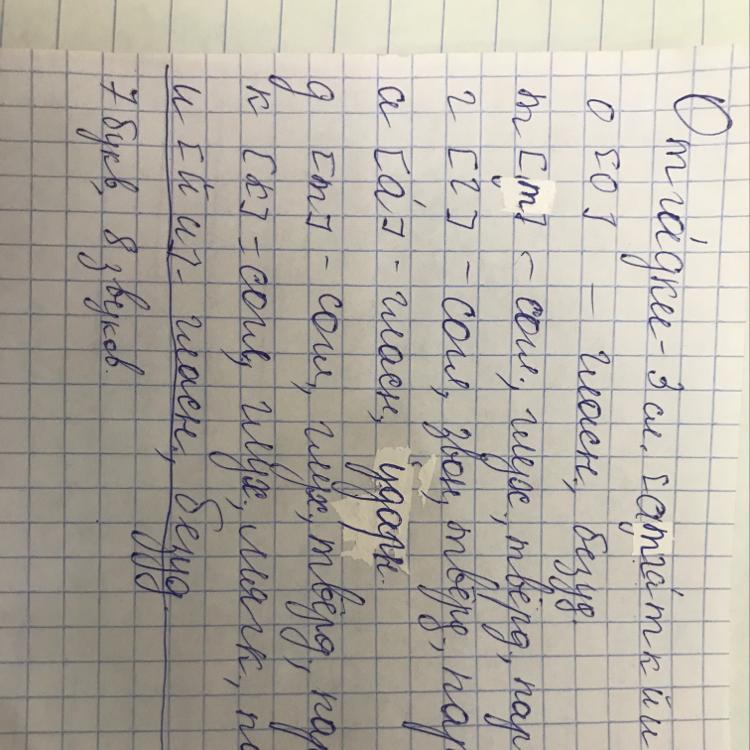 Отга́дки - 3 сл. [атга́ткйи
о [о] - гласн., безуд.
т [т] - согл., глух, твёрд, пар
г [г] - согл, звон, твёрд, пар
а [а́] - гласн, ударн.
д [т] - согл, глух, твёрд, пар
к [к] - согл, глух, мягк,
и [йи] - гласн., безуд.
7 букв, 8 звуков.